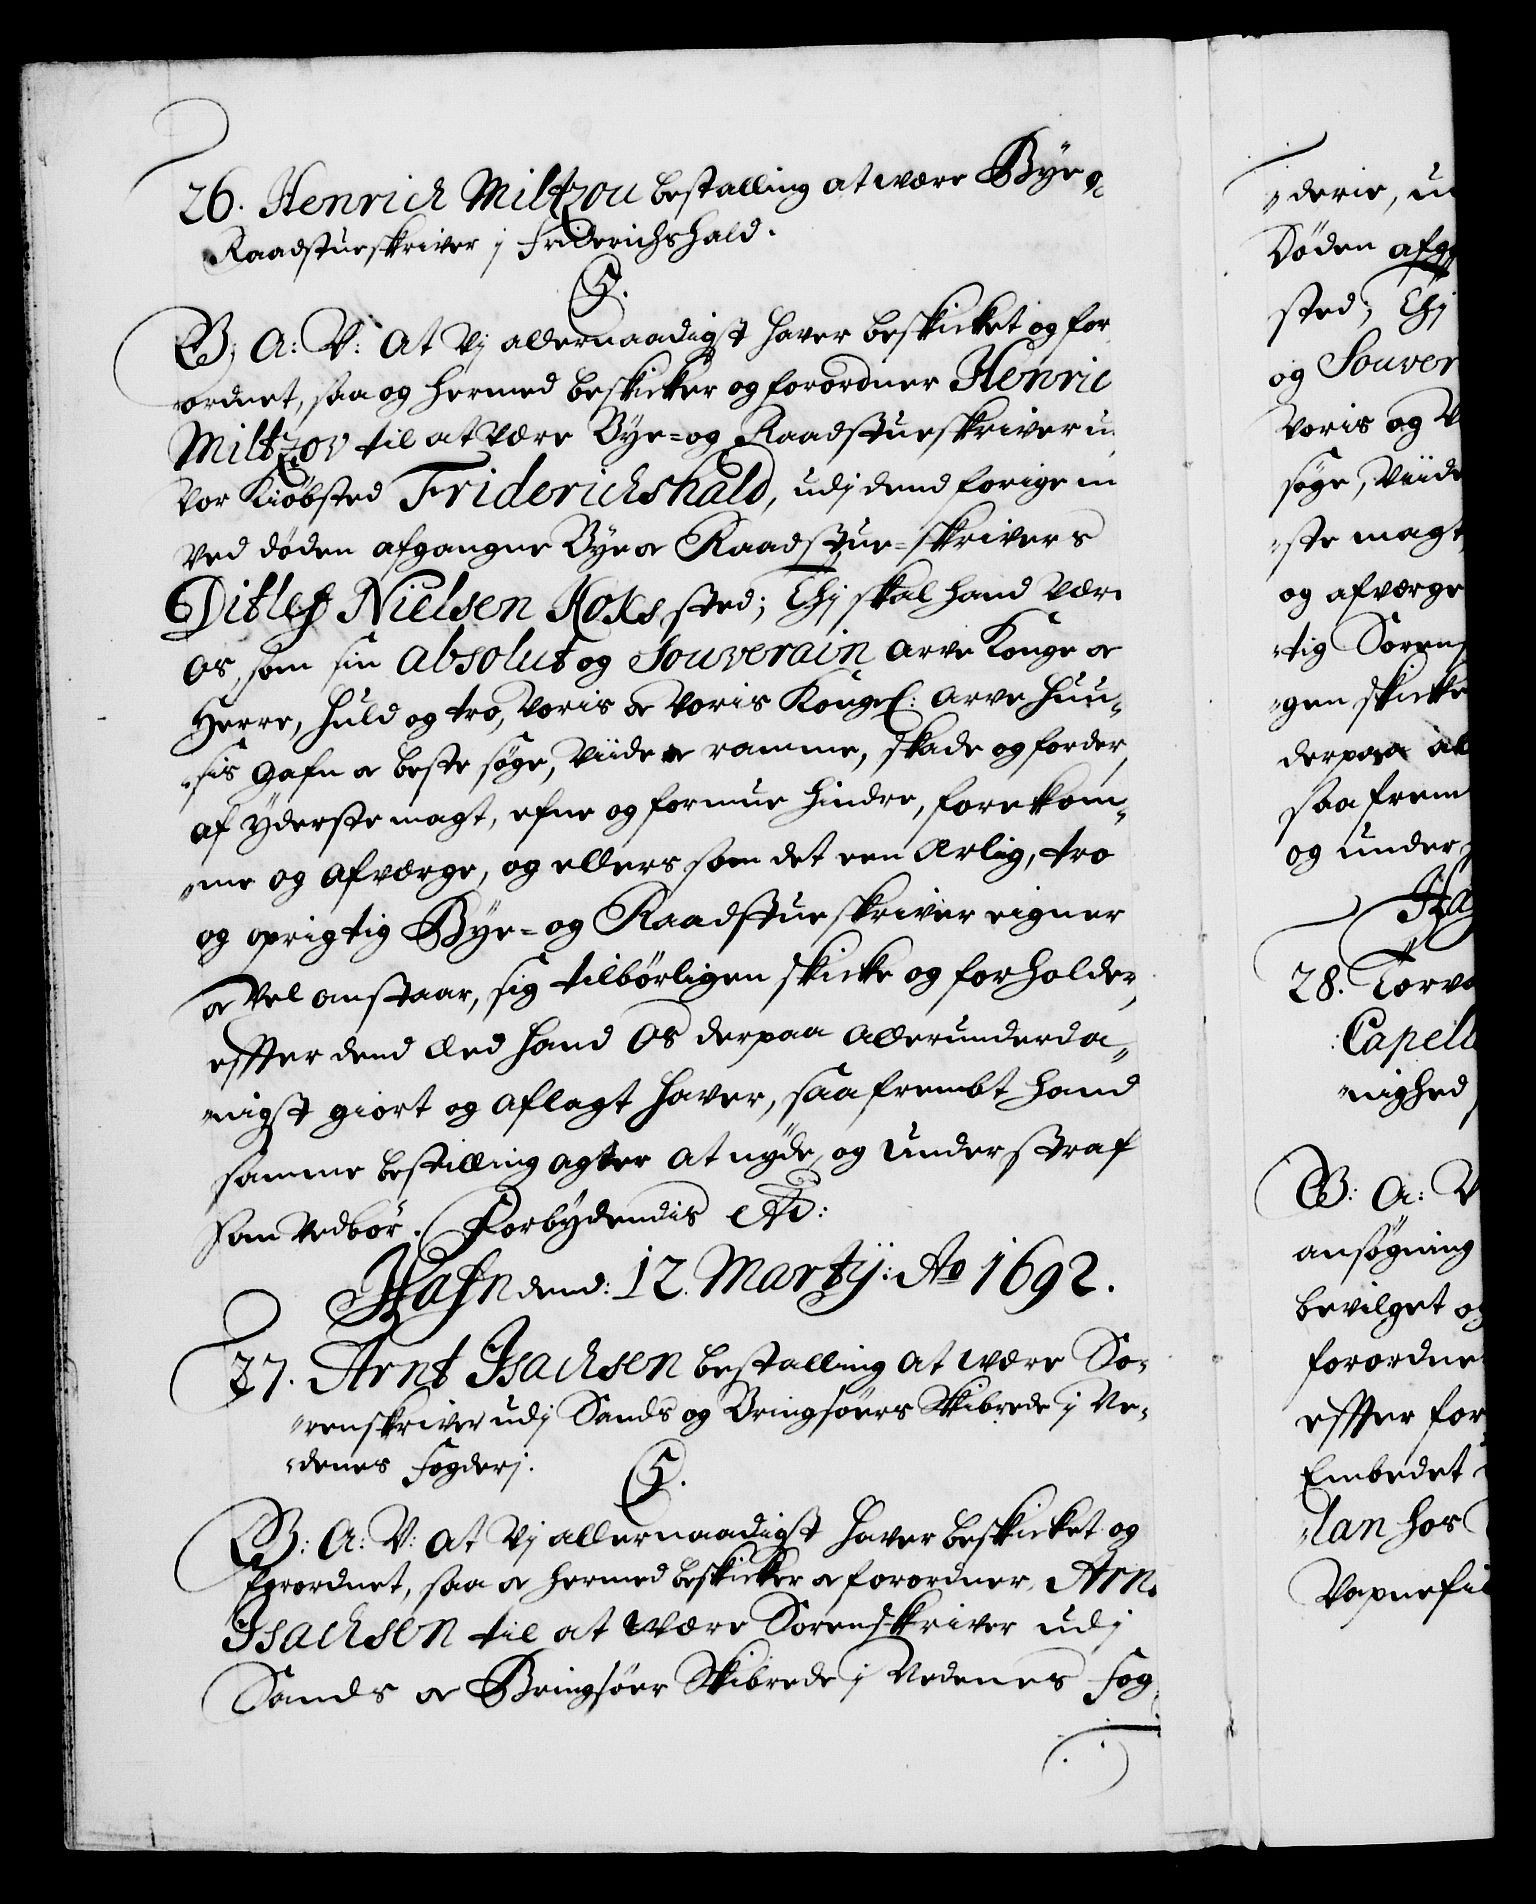 26. Henrich Miltzou bestalling at være Bye og
Raadstueskriver j Friderichshald.
G. 5.
G: A: V: At Vj allernaadigst hafver beskicket og for
ordnet, saa og hermed beskicker og forordner Henric
Miltzov til at være Bye- og Raadstueskriver u
vor Kiøbsted Friderichshald, udj dend forige nu
ved døden afgangne Bye og Raadstue-skrivers
Ditlef Nielsen Koks sted; Thj skal hand være
Os, som sin absolut og Souverain Arve Konge og
Herre, huld og tro, Voris og Voris Kongel: Arve Huu-
sis gafn og beste søge, viide og ramme, skade og forder,
af yderste magt, efne og formue hindre, forekom-
me og afværge, og ellers som det een ærlig, tro
og oprigtig Bye- og Raadstueskriver eigner
og vel anstaar, sig tilbørligen skicke og forholder,
effter dend Eed hand Os derpaa allerunderda-
nigst giort og aflagt haver, saafrembt hand
samme bestilling agter at nyde, og under straf
som vedbør. Forbydendis etc:
Hafn dend: 12. Martij: Ao 1692.
27. Arnt Isachsen bestalling at være So-
renskriver udj Sands og Bringsøers Skibrede j Ne-
denes fogderj.
5.
G: A: V: At Vj allernaadigst haver beskicket og
forordnet, saa og hermed beskicker og forordner, Arn
Isachsen til at være Sorenskriver udj
Sands og Bringsøer Skibrede j Nedenes fog
derie, u
Døden afg
sted; Thj
og Souver
Voris og V
søge, Viide
ste magt
og afværge
tig Sorens
gen skicke
derpaa al
saafrem
og under
Ha
28. Torv
Capell
nighed
G: A: V
ansøgning
bevilget og
forordne
effter for
Embedet
lan hos
Vapnefi